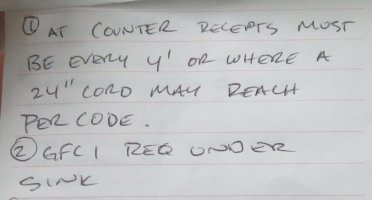 ① AT COUNTER RECEPTS MUST
BE EVERY 4' OR WHERE A
24" CORD MAY REACH
PER CODE.
② GFCI REQ UNDER
SINK